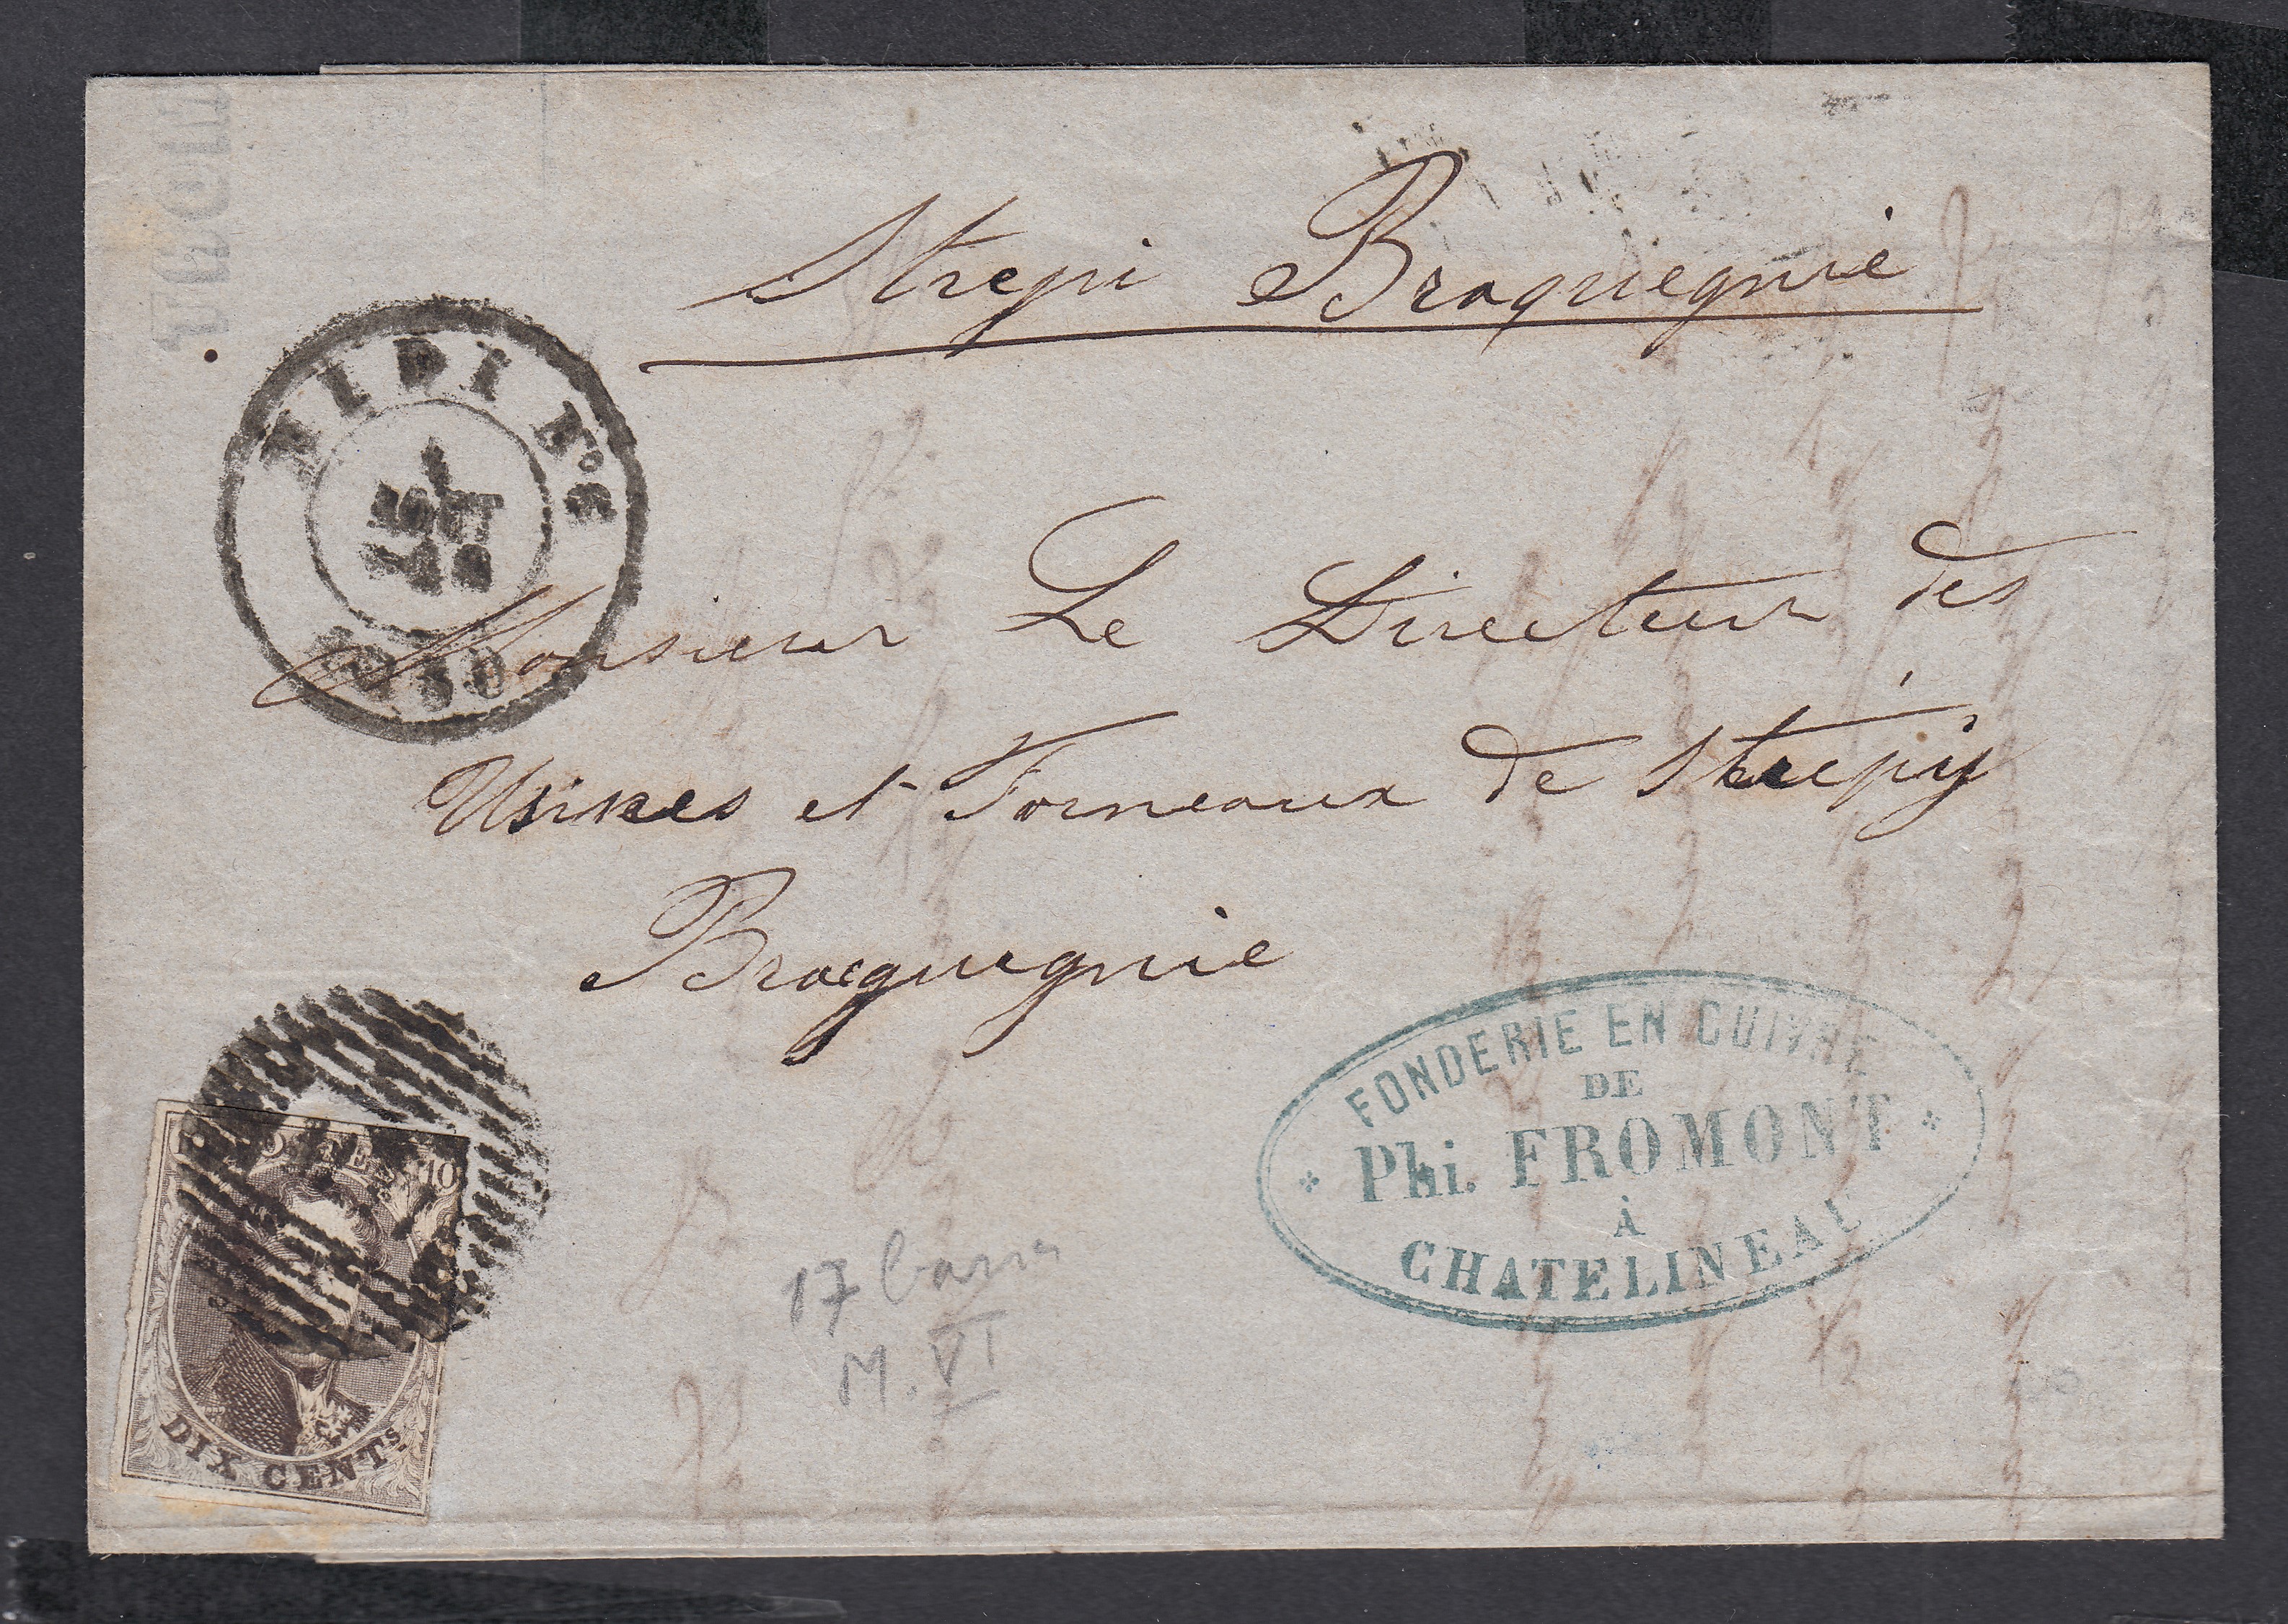 Strepi Braquegnie
MIDI No 6
1
AOUT
Monsieur Le Directeur des
Usines et Forneaux de Strépÿ
Bracquegnie
FONDERIE EN CUIVRE
DE
Phi. FROMONT
À
CHATELINEAU
10
DIX CENTs
17 barres
M. VI